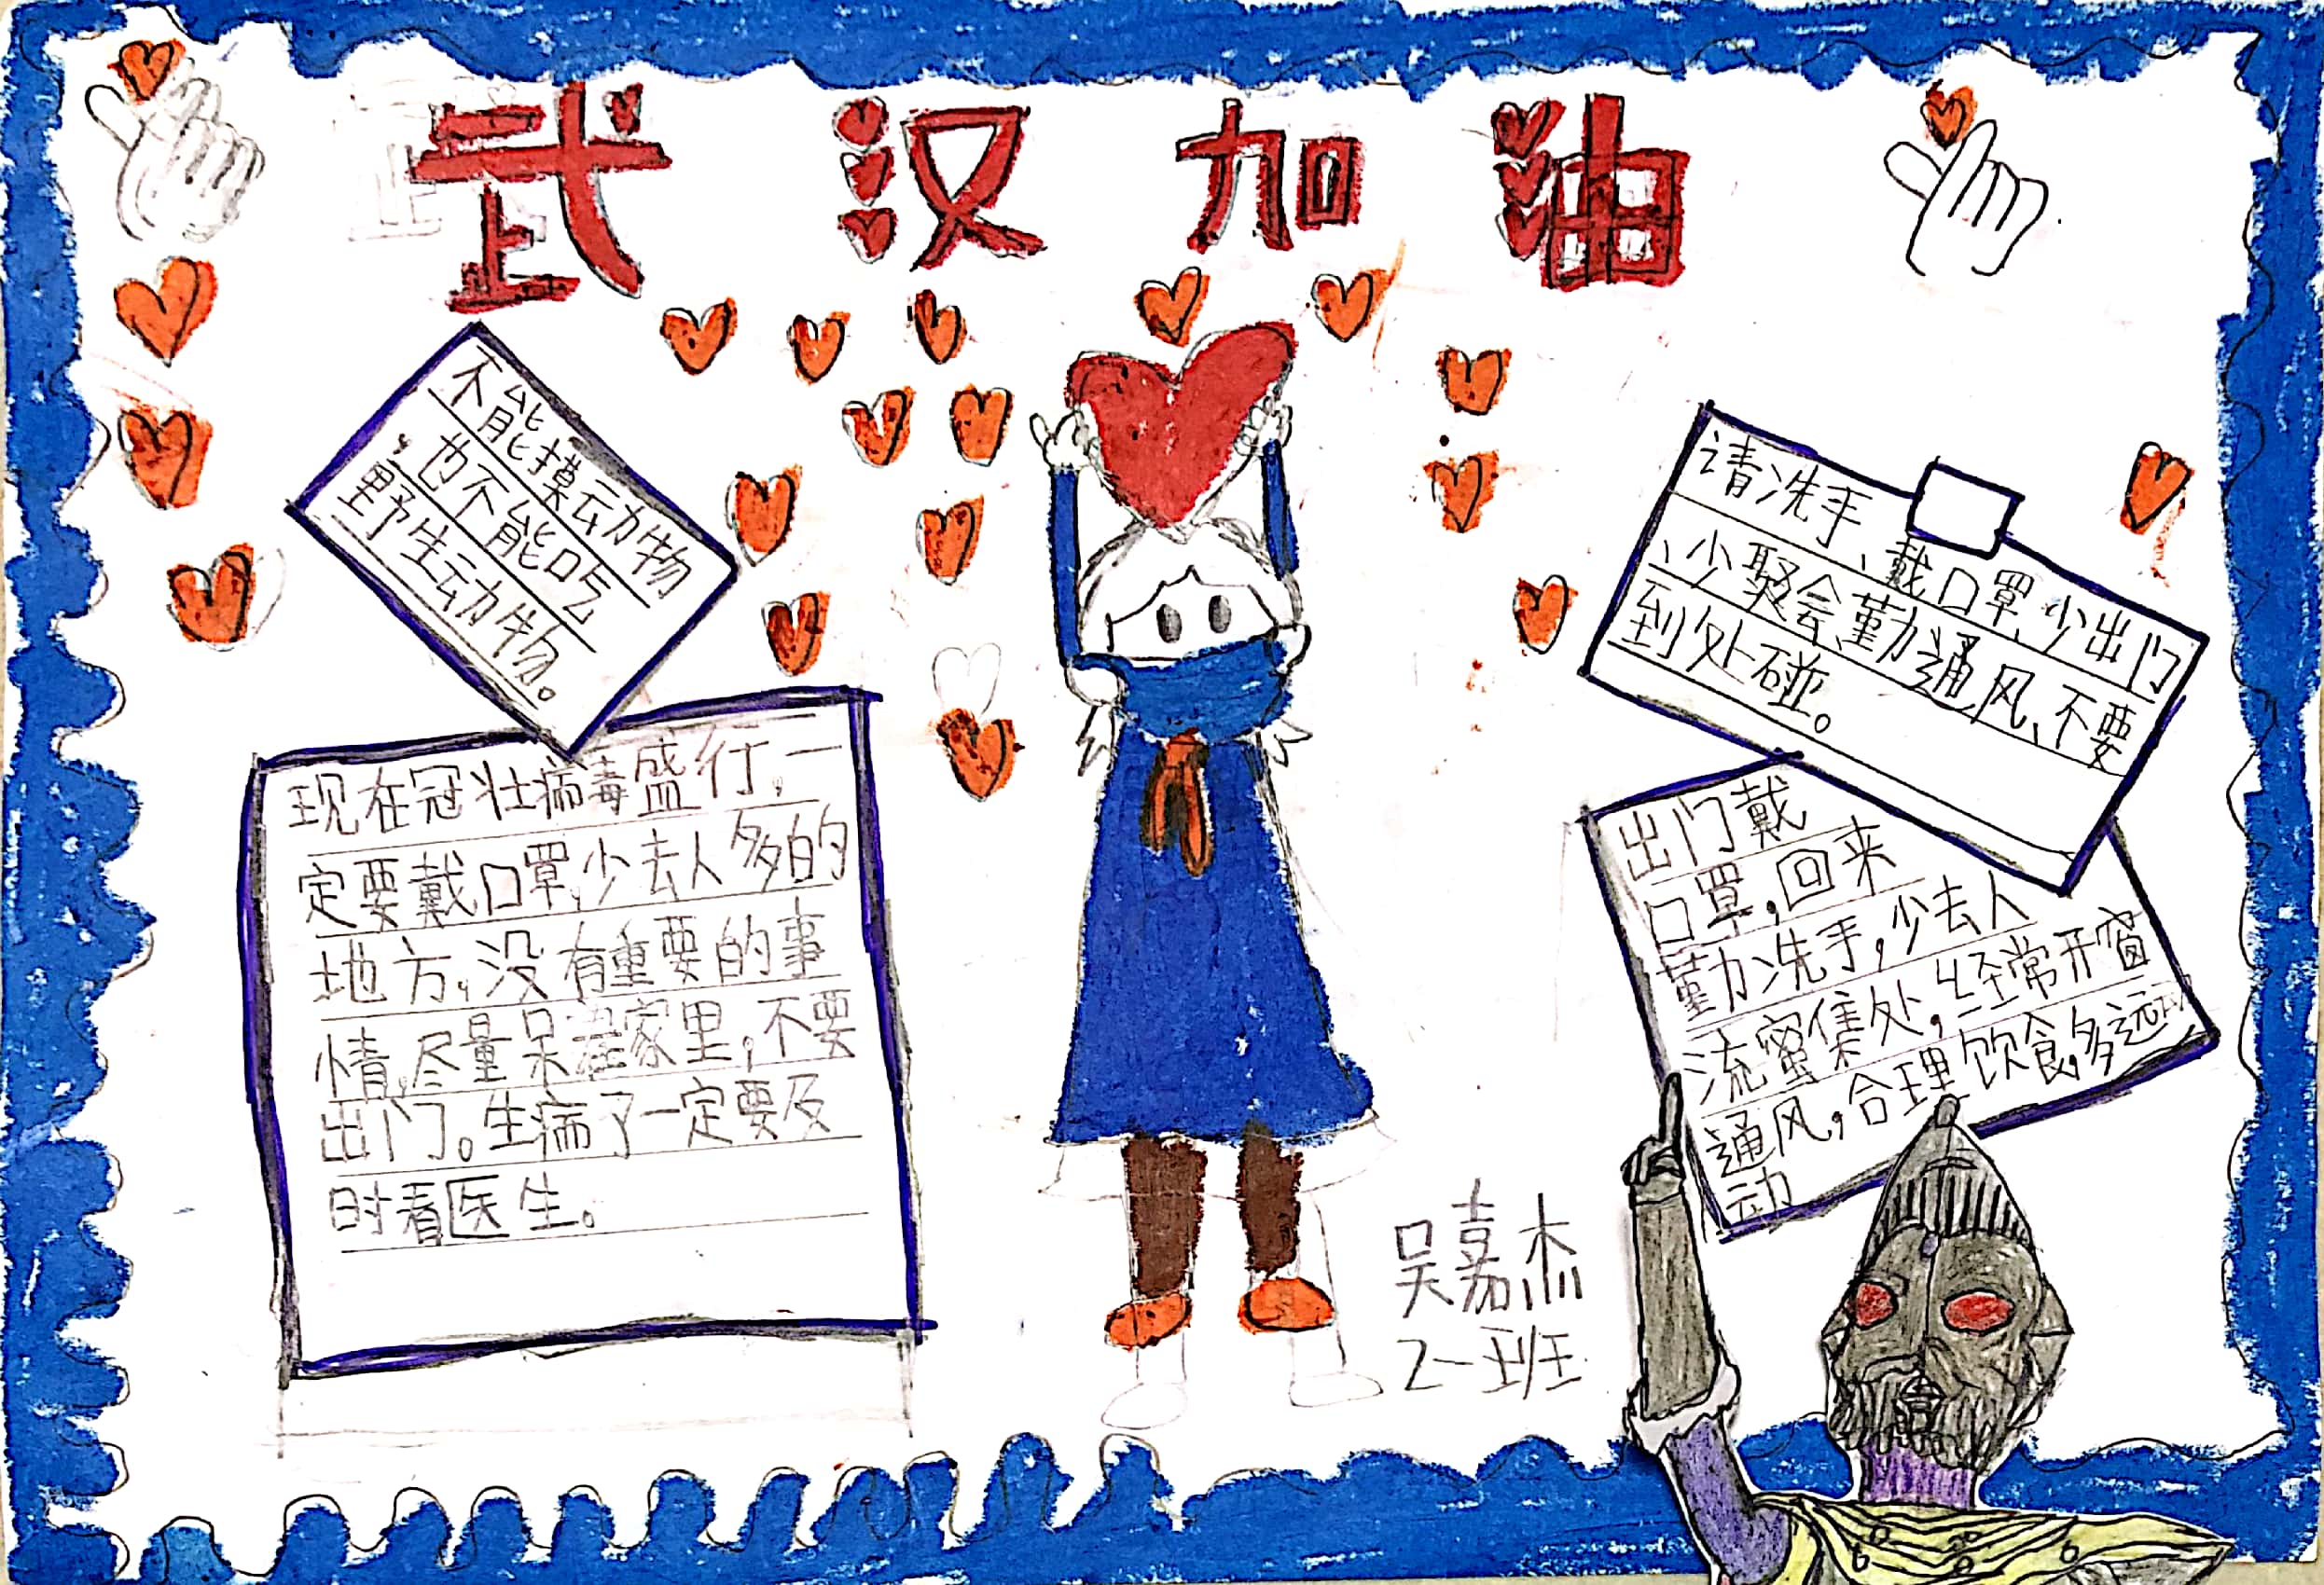 武汉加油
不能摸动物
，也不能吃
野生动物。
现在冠壮病毒盛行，一
定要戴口罩，少去人多的
地方，没有重要的事
情，尽量呆在家里，不要
出门。生病了一定要及
时看医生。
请洗手、戴口罩、少出门
、少聚会勤通风、不要
到处碰。
出门戴
口罩，回来
勤洗手，少去人
流蜜集处，经常开窗
通风，合理饮食，多远
动
吴嘉杰
2一班